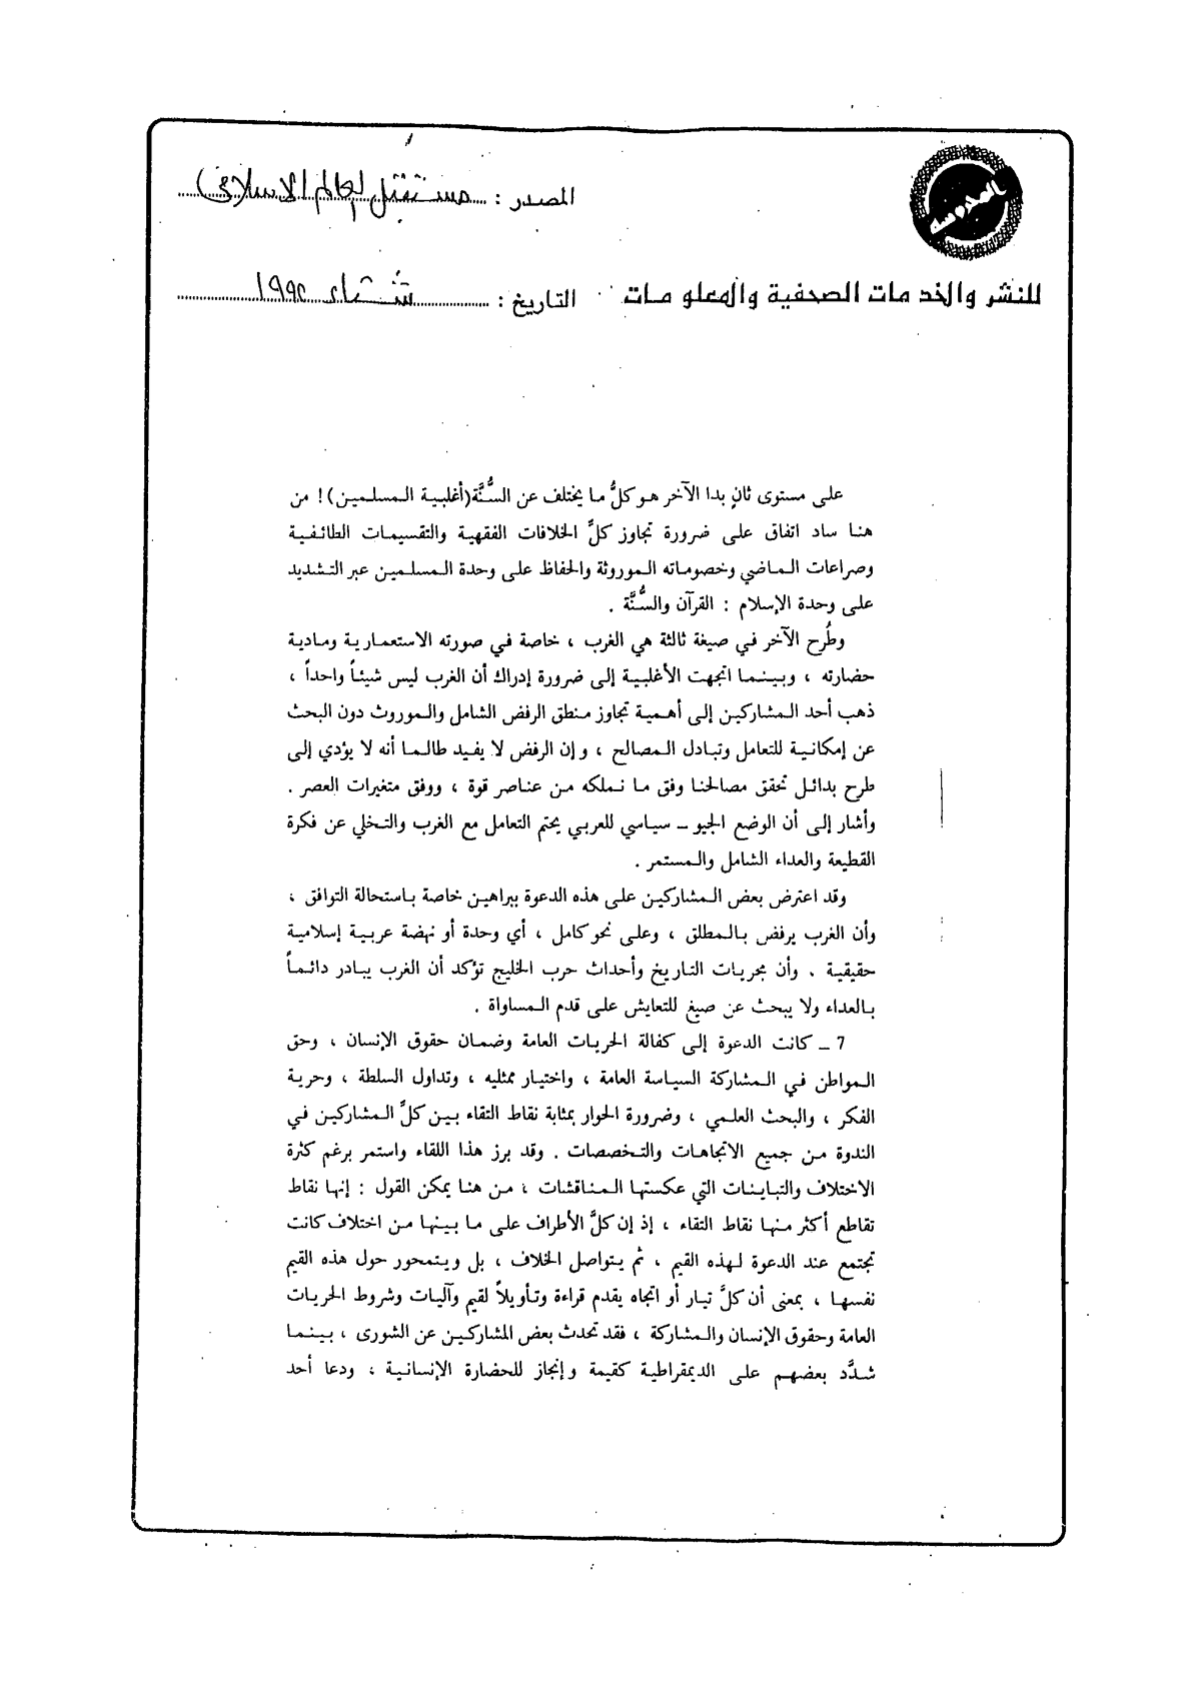 المصدر : مستقبل العالم الاسلامي
للنشر والخدمات الصحفية والمعلومات
التاريخ : شتاء ١٩٩٢
على مستوى ثانٍ بدا الآخر هو كلُّ ما يختلف عن السُّنَّة(أغلبية المسلمين)! من
هنا ساد اتفاق على ضرورة تجاوز كلِّ الخلافات الفقهية والتقسيمات الطائفية
وصراعات الماضي وخصوماته الموروثة والحفاظ على وحدة المسلمين عبر التشديد
على وحدة الإسلام : القرآن والسُّنَّة .
وطُرح الآخر في صيغة ثالثة هي الغرب ، خاصة في صورته الاستعمارية ومادية
حضارته ، وبينما اتجهت الأغلبية إلى ضرورة إدراك أن الغرب ليس شيئاً واحداً ،
ذهب أحد المشاركين إلى أهمية تجاوز منطق الرفض الشامل والموروث دون البحث
عن إمكانية للتعامل وتبادل المصالح ، وإن الرفض لا يفيد طالما أنه لا يؤدي إلى
طرح بدائل تحقق مصالحنا وفق ما نملكه من عناصر قوة ، ووفق متغيرات العصر .
وأشار إلى أن الوضع الجيو ــ سياسي للعربي يحتم التعامل مع الغرب والتخلي عن فكرة
القطيعة والعداء الشامل والمستمر .
وقد اعترض بعض المشاركين على هذه الدعوة ببراهين خاصة باستحالة التوافق ،
وأن الغرب يرفض بالمطلق ، وعلى نحو كامل ، أي وحدة أو نهضة عربية إسلامية
حقيقية . وأن مجريات التاريخ وأحداث حرب الخليج تؤكد أن الغرب يبادر دائماً
بالعداء ولا يبحث عن صيغ للتعايش على قدم المساواة .
7 ــ كانت الدعوة إلى كفالة الحريات العامة وضمان حقوق الإنسان ، وحق
المواطن في المشاركة السياسة العامة ، واختيار ممثليه ، وتداول السلطة ، وحرية
الفكر ، والبحث العلمي ، وضرورة الحوار بمثابة نقاط التقاء بين كلِّ المشاركين في
الندوة من جميع الاتجاهات والتخصصات . وقد برز هذا اللقاء واستمر برغم كثرة
الاختلاف والتباينات التي عكستها المناقشات ، من هنا يمكن القول : إنها نقاط
تقاطع أكثر منها نقاط التقاء ، إذ إن كلَّ الأطراف على ما بينها من اختلاف كانت
تجتمع عند الدعوة لهذه القيم ، ثم يتواصل الخلاف ، بل ويتمحور حول هذه القيم
نفسها ، بمعنى أن كلَّ تيار أو اتجاه يقدم قراءة وتأويلاً لقيم وآليات وشروط الحريات
العامة وحقوق الإنسان والمشاركة ، فقد تحدث بعض المشاركين عن الشورى ، بينما
شدَّد بعضهم على الديمقراطية كقيمة وإنجاز للحضارة الإنسانية ، ودعا أحد